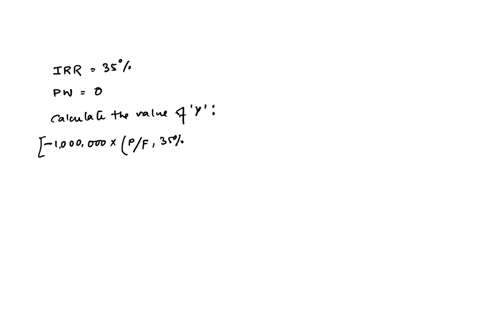 IRR = 35%
PW = 0
Calculate the value of 'Y':
[-1,000,000 × (P/F, 35%